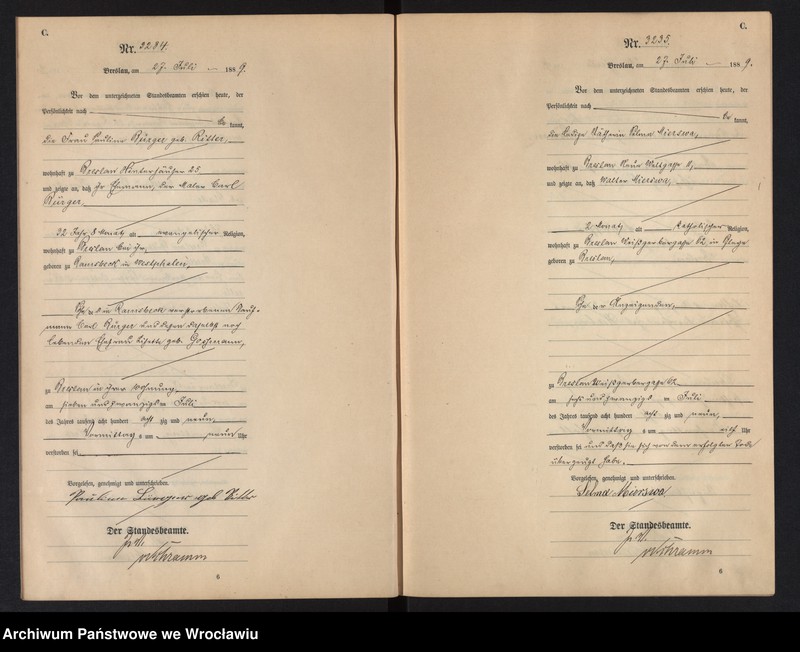 C.
Nr. 3234.
Breslau, am 27. Juli 1889.
Vor dem unterzeichneten Standesbeamten erschien heute, der
Persönlichkeit nach
be kannt,
die Frau Pauline Bürger geb. Ritter,
wohnhaft zu Breslau Hinterhäuser 23
und zeigte an, daß ihr Ehemann, der Maler Carl
Bürger,
32 Jahr 8 Monat alt, evangelischer Religion,
wohnhaft zu Breslau bei ihr,
geboren zu Ramsbeck in Westphalen,
zu Ramsbeck verstorbenen
Carl Bürger und dessen daselbst noch
lebenden Ehefrau geb.
zu Breslau in ihrer Wohnung,
am sieben und zwanzigsten Juli
des Jahres tausend acht hundert acht zig und neun,
Vormittag s um neun Uhr
verstorben sei
Vorgelesen, genehmigt und unterschrieben.
Pauline Buerger geb Ritter
Der Standesbeamte.
J. V.
6
C.
Nr. 3235.
Breslau, am 27. Juli 1889.
Vor dem unterzeichneten Standesbeamten erschien heute, der
Persönlichkeit nach
be kannt,
die ledige Näherin Selma Mierswa,
wohnhaft zu Breslau Neue Weltgasse
und zeigte an, daß Walter Mierswa,
2 Monat alt, katholischer Religion,
wohnhaft zu Breslau Weißgerbergasse 62 in Pflege
geboren zu Breslau,
der Anzeigenden,
zu Breslau Weißgerbergasse 62
am sechs und zwanzigsten Juli
des Jahres tausend acht hundert acht zig und neun,
Vormittag s um elf Uhr
verstorben sei und daß sie sich von dem erfolgten Tode
überzeugt habe.
Vorgelesen, genehmigt und unterschrieben.
Selma Mierswa
Der Standesbeamte.
J. V.
6
Archiwum Państwowe we Wrocławiu